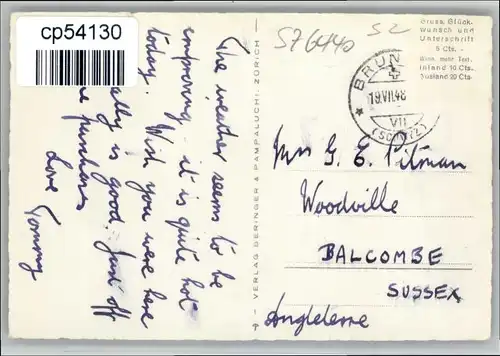 cp54130
The weather seems to be
improving. it is quite hot
today. Wish you were here
ally is good. Just off
purchases
Love
Tommy
- VERLAG BERINGER & PAMPALUCHI, ZÜRICH
576440
52
Gruss, Glück-
wunsch und
Unterschrift
5 Cts.
Wenn mehr Text:
Inland 10 Cts.
Ausland 20 Cts.
BRUN
19.VII.48
VII
(SCHWYZ)
Mrs G. E. Pitman
Woodville
BALCOMBE
SUSSEX
Angleterre